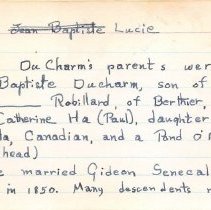 ~~Jean Baptiste~~ Lucie
Du Charm's parents wer
Baptiste Ducharm, son of
Robillard, of Berthier,
Catherine Ha (Paul), daughter
da, Canadian, and a Pand O
head)
e married Gideon Senecal
in 1850. Many descendents r